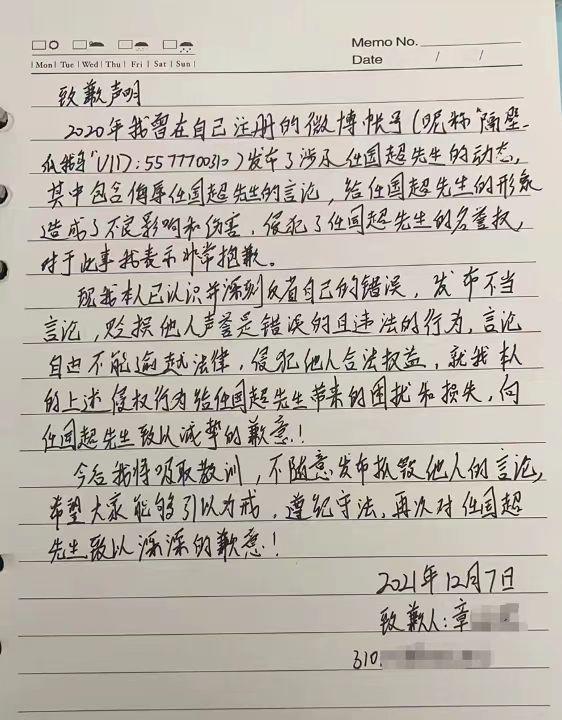 Memo No.
Mon Tue Wed Thu Fri Sat Sun
Date / /
致歉声明
2020年我曾在自己注册的微博帐号(昵称"隔壁
我将"UID:5577700310)发布了涉及任国超先生的动态,
其中包含侮辱任国超先生的言论,给任国超先生的形象
造成了不良影响和伤害,侵犯了任国超先生的名誉权,
对于此事我表示非常抱歉。
现我本人已认识并深刻反省自己的错误,发布不当
言论,贬损他人声誉是错误的且违法的行为,言论
自由不能逾越法律,侵犯他人合法权益,就我本人
的上述侵权行为给任国超先生带来的困扰和损失,向
任国超先生致以诚挚的歉意!
今后我将吸取教训,不随意发布诋毁他人的言论,
希望大家能够引以为戒,遵纪守法,再次对任国超
先生致以深深的歉意!
2021年12月7日
致歉人:章
310.